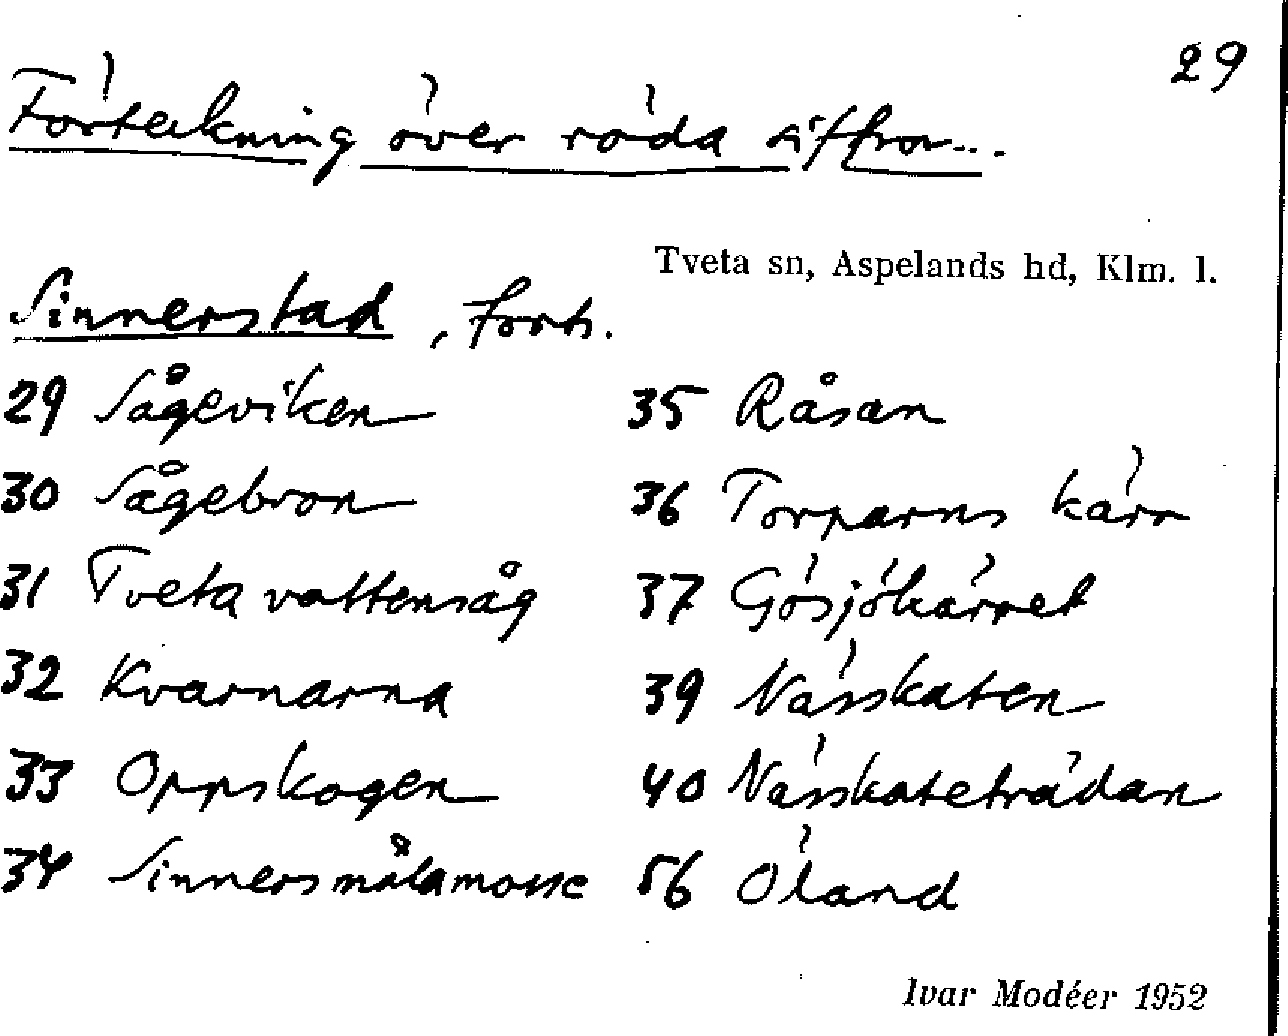 29
Förteckning över röda siffror...
Tveta sn, Aspelands hd, Klm. l.
Sinnerstad, forts.
29 Sågeviken
30 Sågebron
31 Tveta vattensåg
32 Kvarnarna
33 Oppskogen
34 Sinnersmålamosse
35 Råsan
36 Torparns kärr
37 Gösjökärret
39 Nässkaten
40 Nässkateträdan
56 Öland
Ivar Modéer 1952